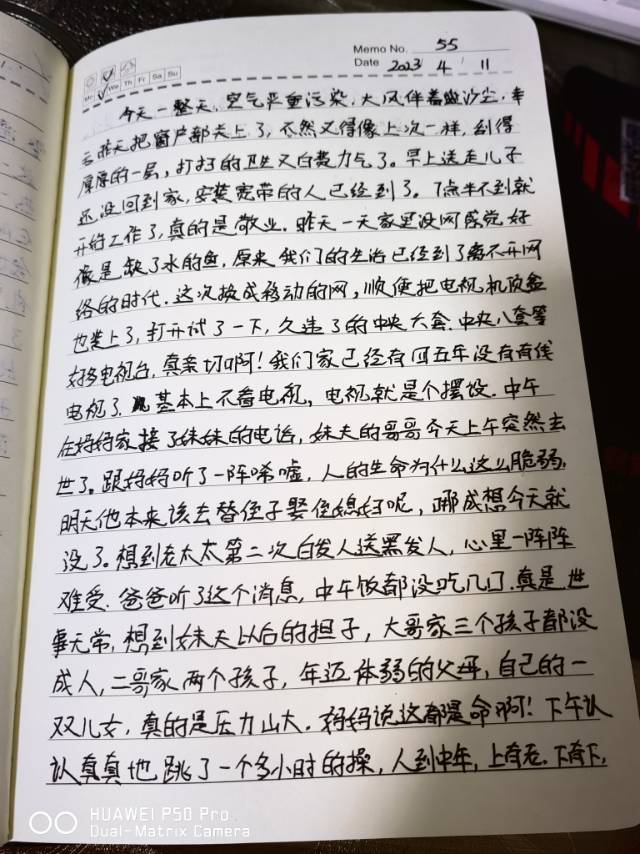 Memo No. 55
Date 2023 4 11
Mo We Th Fr Sa Su
今天一整天,空气严重污染,大风伴着沙尘,幸
亏昨天把窗户都关上了,不然又得像上次一样,刮得
厚厚的一层,打扫的卫生又白费力气了。早上送走儿子
还没回到家,安装宽带的人已经到了。7点半不到就
开始工作了,真的是敬业。昨天一天家里没网感觉好
像是缺了水的鱼,原来我们的生活已经到了离不开网
络的时代.这次换成移动的网,顺便把电视机顶盒
也装上了,打开试了一下,久违了的中央六套.中央八套等
好多电视台,真亲切啊!我们家已经有四五年没有有线
电视了.基本上不看电视,电视就是个摆设.中午
在妈妈家接了妹妹的电话,妹夫的哥哥今天上午突然去
世了。跟妈妈听了一阵唏嘘,人的生命为什么这么脆弱,
明天他本来该去替侄子娶侄媳妇呢,哪成想今天就
没了。想到老太太第二次白发人送黑发人,心里一阵阵
难受.爸爸听了这个消息,中午饭都没吃几口.真是世
事无常,想到妹夫以后的担子,大哥家三个孩子都没
成人,二哥家两个孩子,年迈体弱的父母,自己的一
双儿女,真的是压力山大.妈妈说这都是命啊!下午认
认真真地跳了一个多小时的操,人到中年,上有老.下有下,
HUAWEI P50 Pro
Dual-Matrix Camera